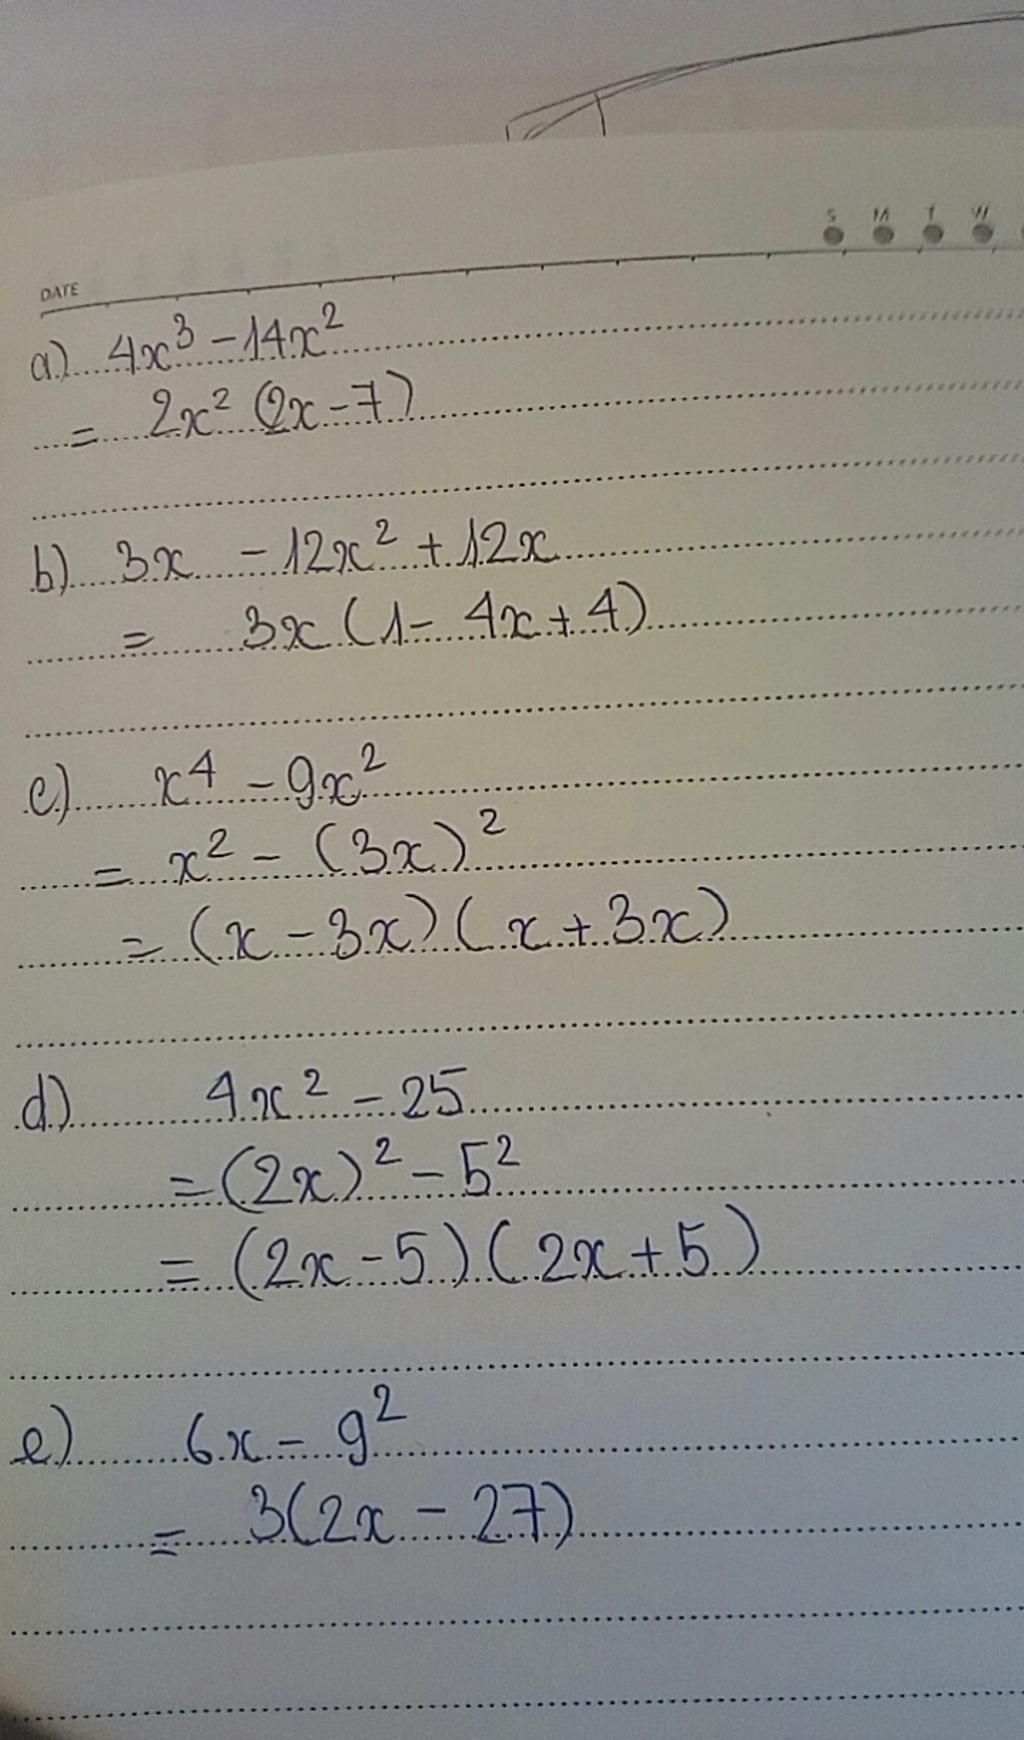 S M T W
DATE
a) 4x³ - 14x²
= 2x² (2x - 7)
b) 3x - 12x² + 12x
= 3x (1 - 4x + 4)
c) x⁴ - 9x²
= x² - (3x)²
= (x - 3x) (x + 3x)
d) 4x² - 25
= (2x)² - 5²
= (2x - 5) (2x + 5)
e) 6x - 9²
= 3(2x - 27)